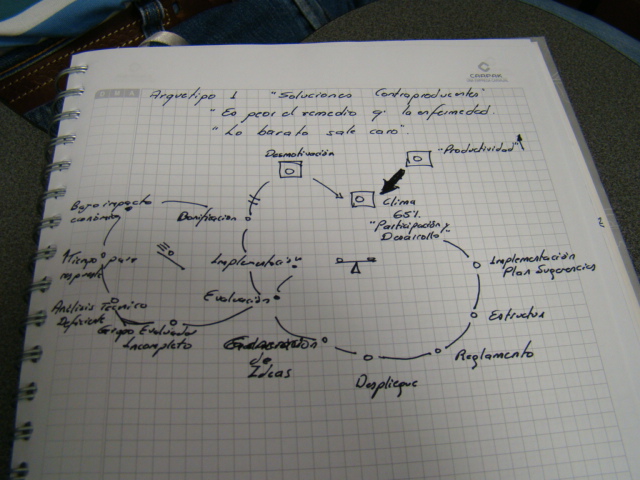 CARPAK
Arquetipo 1 "Soluciones Contraproducentes"
"Es peor el remedio q' la enfermedad.
"Lo barato sale caro".
Desmotivación
"Productividad"
Clima
65%
"Participación y
Desarrollo"
Bajo impacto
Bonificación
Implementación
Evaluación
Tiempo para
Análisis Técnico
Deficiente
Grupo Evaluador
Incompleto
Generación
de
Ideas
Despliegue
Reglamento
Estructura
Implementación
Plan Sugerencias